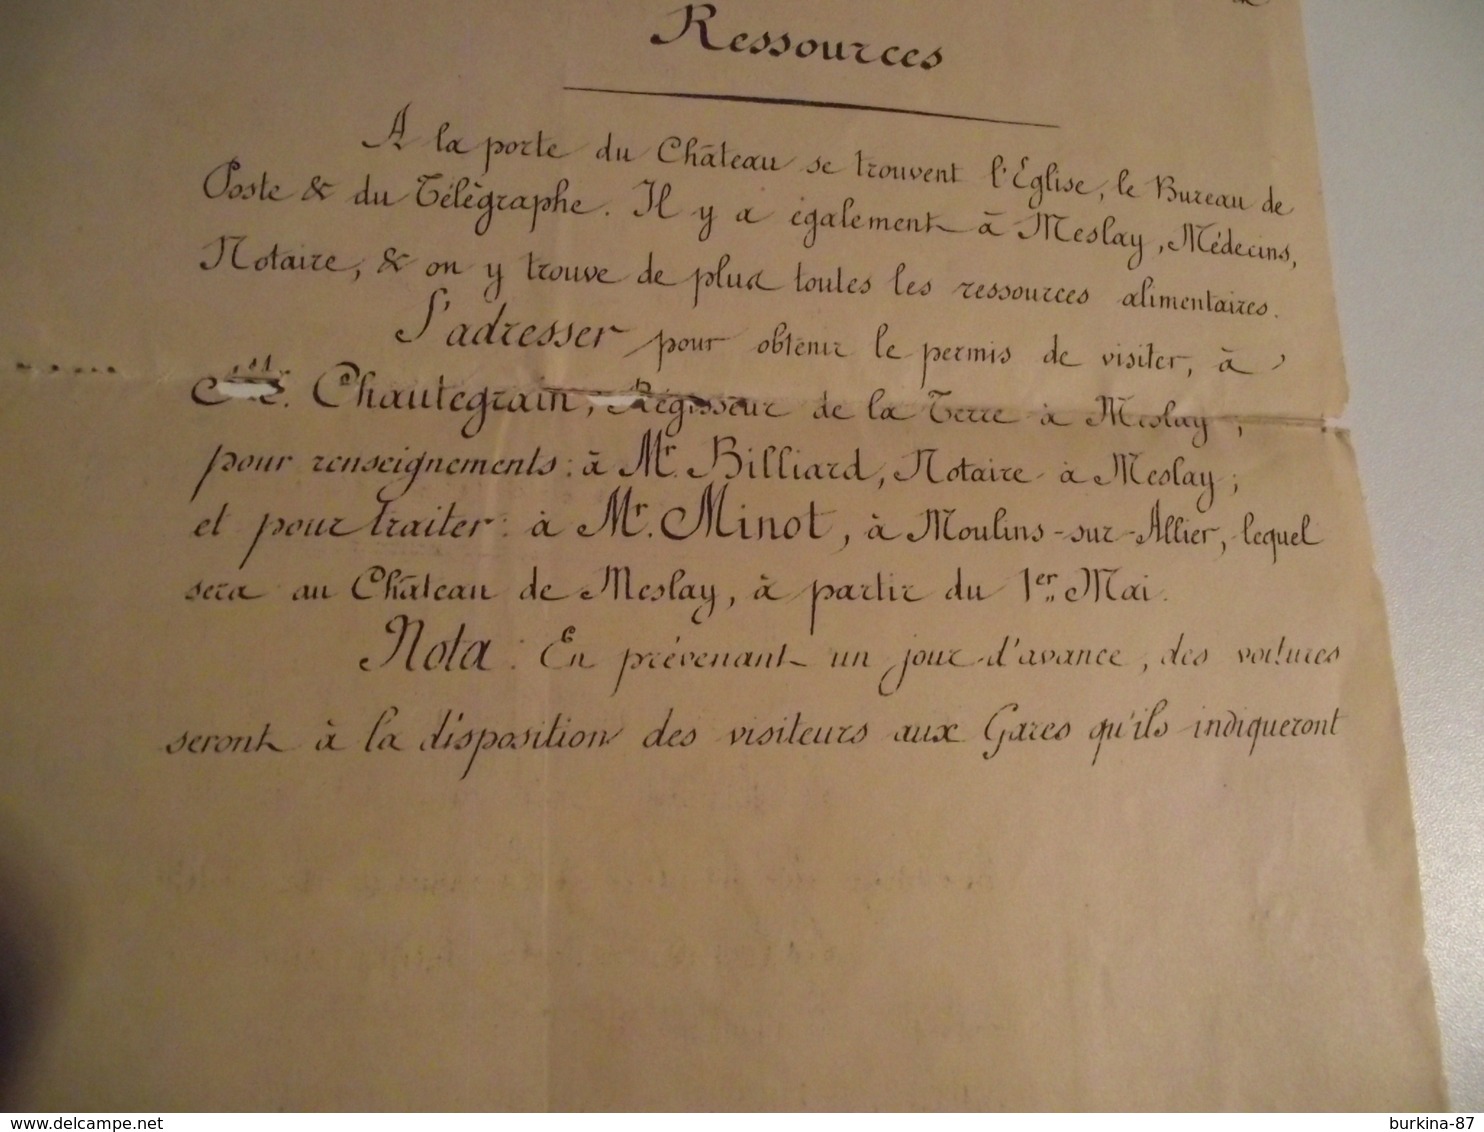 Ressources
A la porte du Château se trouvent l'Eglise, le Bureau de
Poste & du Télégraphe. Il y a également à Meslay, Médecins,
Notaire, & on y trouve de plus toutes les ressources alimentaires.
S'adresser pour obtenir le permis de visiter, à
Chautegrain, Régisseur de la Terre à Meslay,
pour renseignements : à Mr. Billiard, Notaire à Meslay ;
et pour traiter : à Mr. Minot, à Moulins-sur-Allier, lequel
sera au Château de Meslay, à partir du 1er Mai.
Nota : En prévenant un jour d'avance, des voitures
seront à la disposition des visiteurs aux Gares qu'ils indiqueront
burkina-87